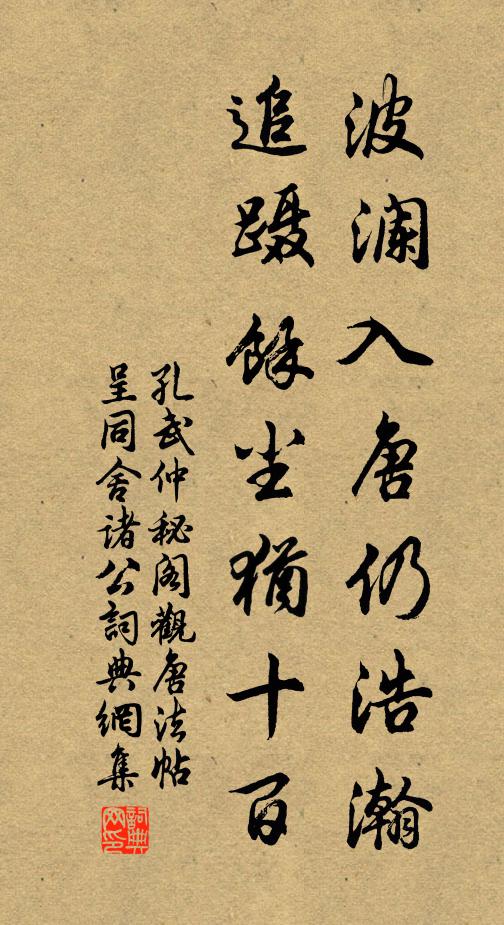 波澜入唐仍浩瀚
追蹑馀尘犹十百
孔武仲秘阁觀唐法帖
呈同舍诸公詞典網集
詞典
网印